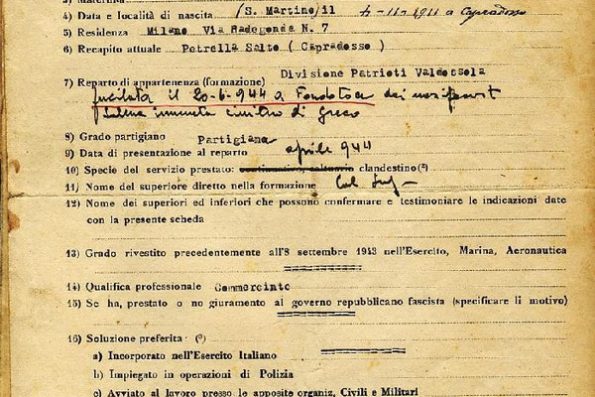 4) Data e località di nascita (S. Martino) il 4-11-1911 a Capradosso
5) Residenza Milano Via Radegonda N. 7
6) Recapito attuale Petrella Salto ( Capradosso)
7) Reparto di appartenenza (formazione) Divisione Patrioti Valdossola
fucilata il 20-6-1944 a Fondotoce dei
Salma cimitero di Greco
8) Grado partigiano Partigiana
9) Data di presentazione al reparto aprile 944
10) Specie del servizio prestato: continuativo, saltuario clandestino(²)
11) Nome del superiore diretto nella formazione
12) Nome dei superiori ed inferiori che possono confermare e testimoniare le indicazioni date
con la presente scheda
13) Grado rivestito precedentemente all'8 settembre 1943 nell'Esercito, Marina, Aeronautica
14) Qualifica professionale Commerciante
15) Se ha, prestato o no giuramento al governo repubblicano fascista (specificare li motivo)
16) Soluzione preferita : (³)
a) Incorporato nell'Esercito Italiano
b) Impiegato in operazioni di Polizia
c) Avviato al lavoro presso le apposite organiz, Civili e Militari